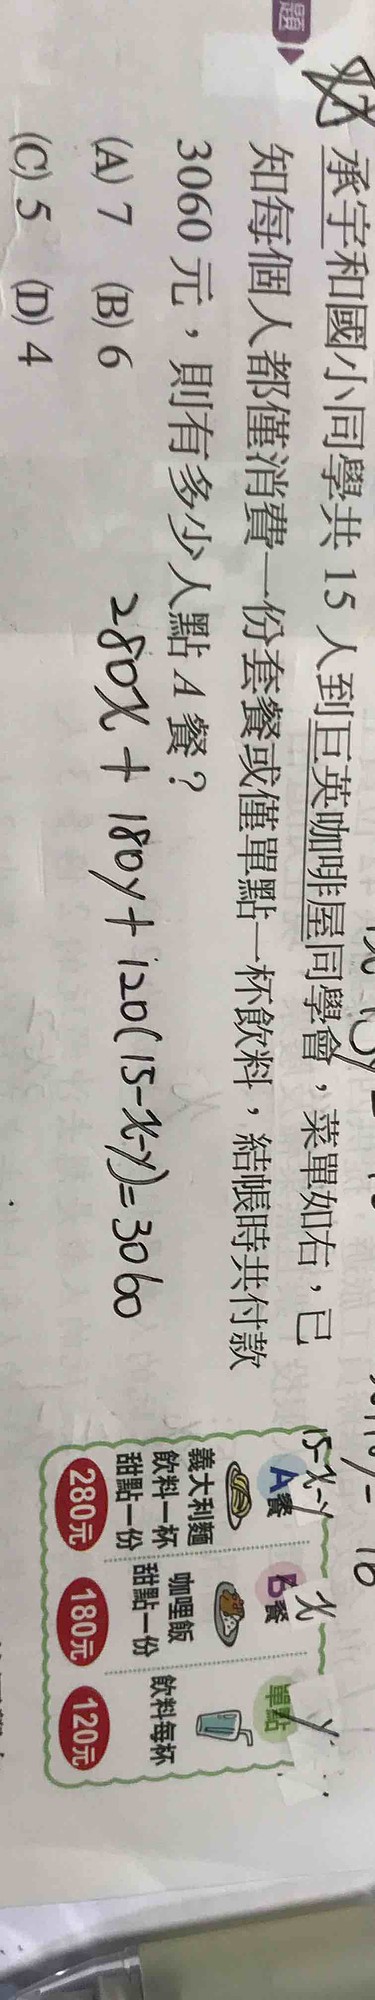 題
承宇和國小同學共 15 人到巨英咖啡屋同學會，菜單如右，已
知每個人都僅消費一份套餐或僅單點一杯飲料，結帳時共付款
3060 元，則有多少人點 A 餐？
(A) 7 (B) 6
(C) 5 (D) 4
280x + 180y + 120(15-x-y)=3060
15-x-y x y
A餐 B餐 單點
義大利麵 咖哩飯 飲料每杯
飲料一杯 甜點一份
甜點一份
280元 180元 120元